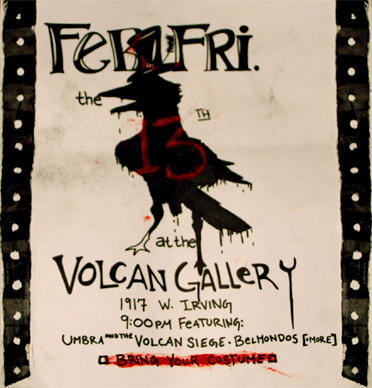 FEB FRI.
the
13
TH
at the
VOLCAN GALLERY
1917 W. IRVING
9:00PM FEATURING:
UMBRA AND THE VOLCAN SIEGE. BELMONDOS [+MORE]
BRING YOUR COSTUME